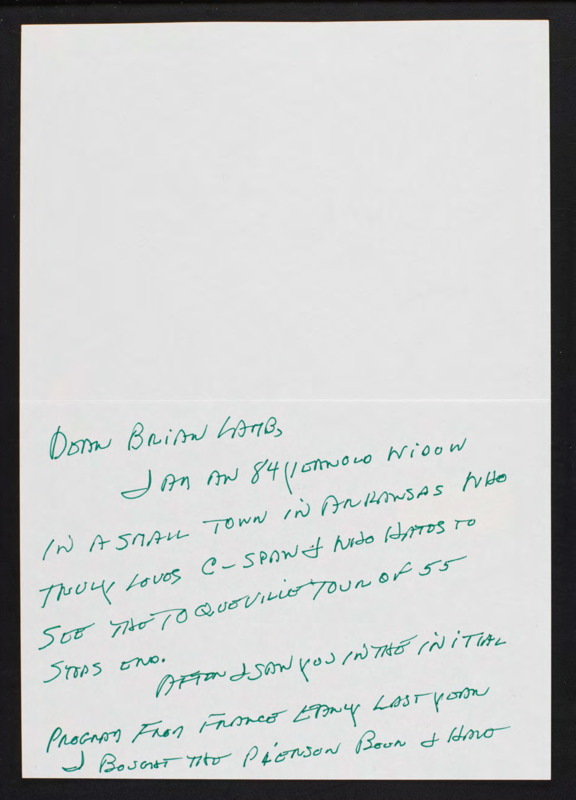 Dear Brian Lamb,
I am an 84 year old widow
in a small town in Arkansas who
truly loves C-SPAN & who hates to
see the Toqueville tour of 55
stops end.
After I saw you in the initial
program from France early last year
I bought the Pierson book & have